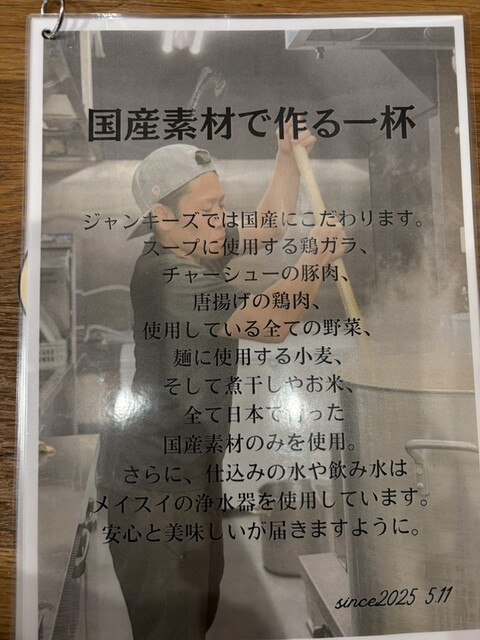 国産素材で作る一杯
ジャンキーズでは国産にこだわります。
スープに使用する鶏ガラ、
チャーシューの豚肉、
唐揚げの鶏肉、
使用している全ての野菜、
麺に使用する小麦、
そして煮干しやお米、
全て日本で った
国産素材のみを使用。
さらに、仕込みの水や飲み水は
メイスイの浄水器を使用しています。
安心と美味しいが届きますように。
since2025 5.11